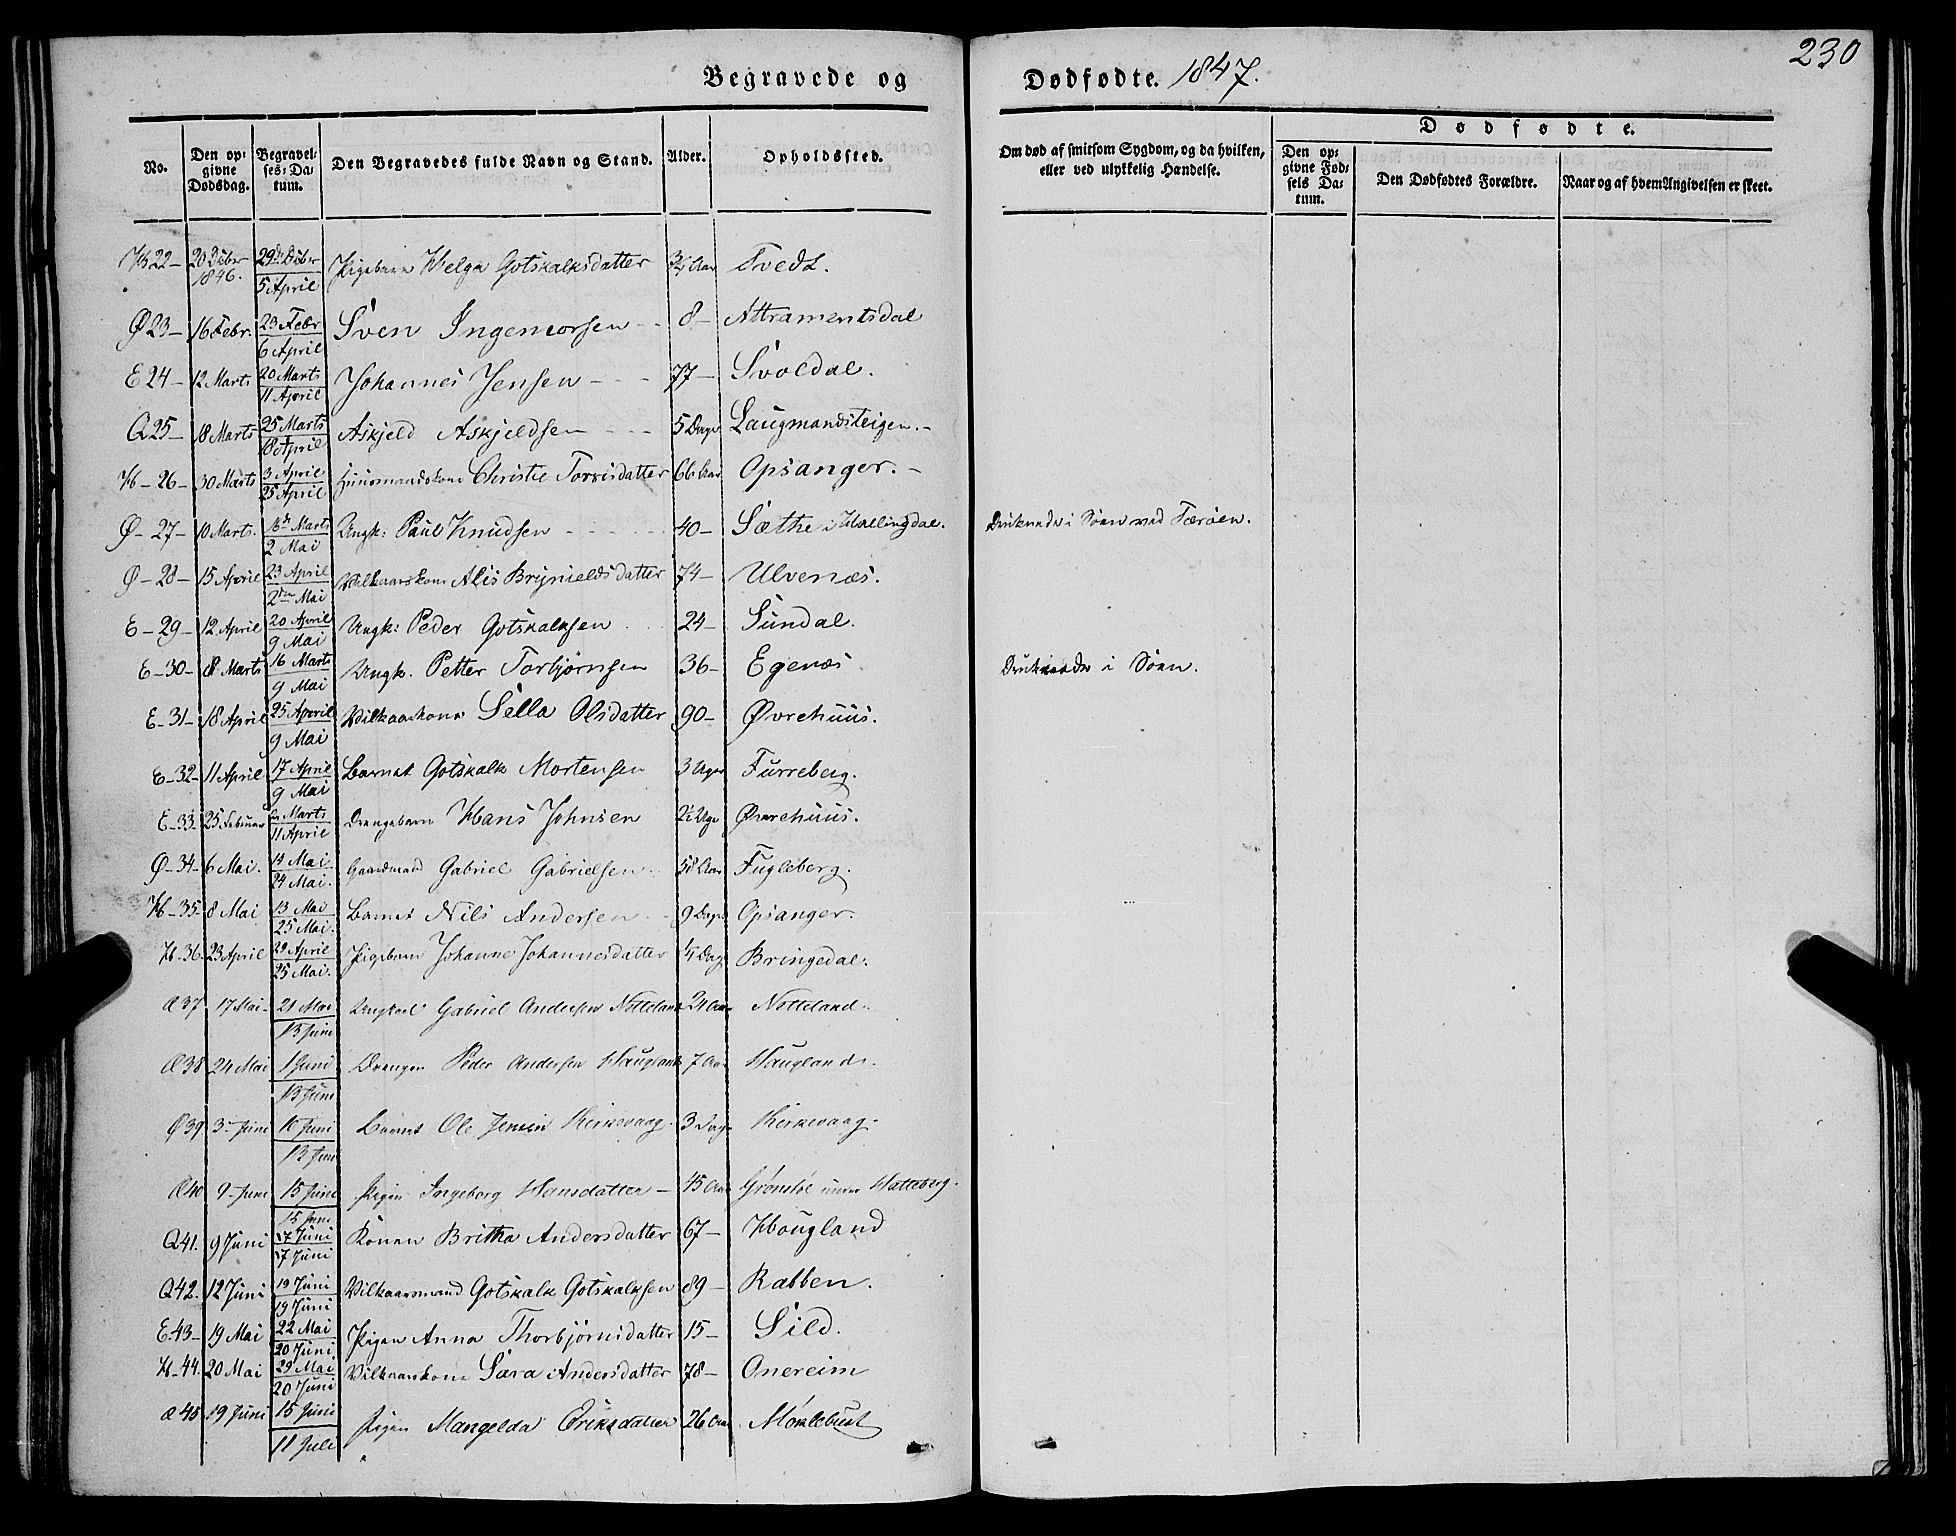 230
Begravede og Dødfødte. 1847.
No. Den opgivne Dødsdag. Begravelses-Datum. Den Begravedes fulde Navn og Stand. Alder. Opholdssted. Om død af smitsom Sygdom, og da hvilken, eller ved ulykkelig Hændelse. Dødfødte. Den opgivne Fødsels Datum. Den Dødfødtes Forældre. Naar og af hvem Angivelsen er skeet.
H 22 – 20 Dcbr 1846. 29de Dcbr 5 April Pigebarn Helga Gotskalksdatter 3/4 Aar Tvedt.
Ø 23 – 16 Febr. 23 Febr 6 April Sven Ingemorsen – 8 – Attramentsdal
E 24 – 12 Marts 20 Marts 11 April Johannes Jensen – 77 – Svoldal.
Q 25 – 18 Marts 25 Marts 18 April Askjeld Askjeldsen 5 Dage Laugmandsteigen. –
H – 26 – 30 Marts 3 April 25 April Huusmandskone Christie Torrisdatter 66 Aar Opsanger. –
Ø – 27 – 10 Marts. 16de Marts 2 Mai Ungk: Paul Knudsen 40 – Sæthe i Hallingdal. Druknede i Søen ved Færøen.
Ø – 28 – 15 April 23 April 2den Mai Vilkaarskone Alis Brynieldsdatter 74 – Ulvenæs.
E – 29 – 12 April 20 April 9 Mai Ungk: Peder Gotskalksen 24 – Sundal.
E – 30 – 8 Marts 16 Marts 9 Mai Ungk. Petter Torbjørnsen 36 – Egenæs Druknede i Søen.
E – 31 – 18 April 25 April 9 Mai Vilkaarkone Sella Olsdatter 90 – Øvrehuus.
E – 32 – 11 April 17 April 9 Mai Barnet Gotskalk Mortensen 3 Uger Furreberg.
E – 33. 25 Februar Marts 11 April Drengebarn Hans Johnsen 2½ Uge Øvrehuus.
Ø – 34 – 6 Mai. 14 Mai 24 Mai. Gaardmand Gabriel Gabrielsen 58 Aar Fugleberg.
H – 35. 8 Mai 13 Mai 25 Mai. Barnet Nils Andersen 9 Dage Opsanger.
H – 36. 23 April 29 April 25 Mai. Pigebarn Johanne Johannesdatter Dag. Bringedal.
Æ 37. 17 Mai – 21 Mai 13 Juni Ungkarl Gabriel Andersen Notteland 24 Aar Notteland.
Æ 38 24 Mai 1 Juni 13 Juni Drengen Peder Andersen Haugland 7 Aar Hauglands.
Ø 39 3 – Juni 10 Juni 13 Juni Barnet Ole Jensen Kirkevaag. 3 Dage Kirkevaag.
Æ 40 9 – Juni 15 Juni 15 Juni Pigen Ingeborg Hansdatter – 45 Aar Grønstøl under Hatteberg.
Q 41. 9 Juni 17 Juni 17 Juni Konen Britha Andersdatter 67 – Hougland
Q 42. 12 Juni 19 Juni 19 Juni Vilkaarsmand Gotskalk Gotskalksen 89 – Rabben.
E. 43 – 19 Mai 22 Mai 20 Juni Pigen Anna Thorbjørnsdatter 15 – Sild.
H – 44. 20 Mai 29 Mai 20 Juni Vilkaarskone Sara Andersdatter 78 – Onereim
Æ 45 19 Juni 15 Juni 11 Juli Pigen Mangelda Eriksdatter 26 Aar Møklebust